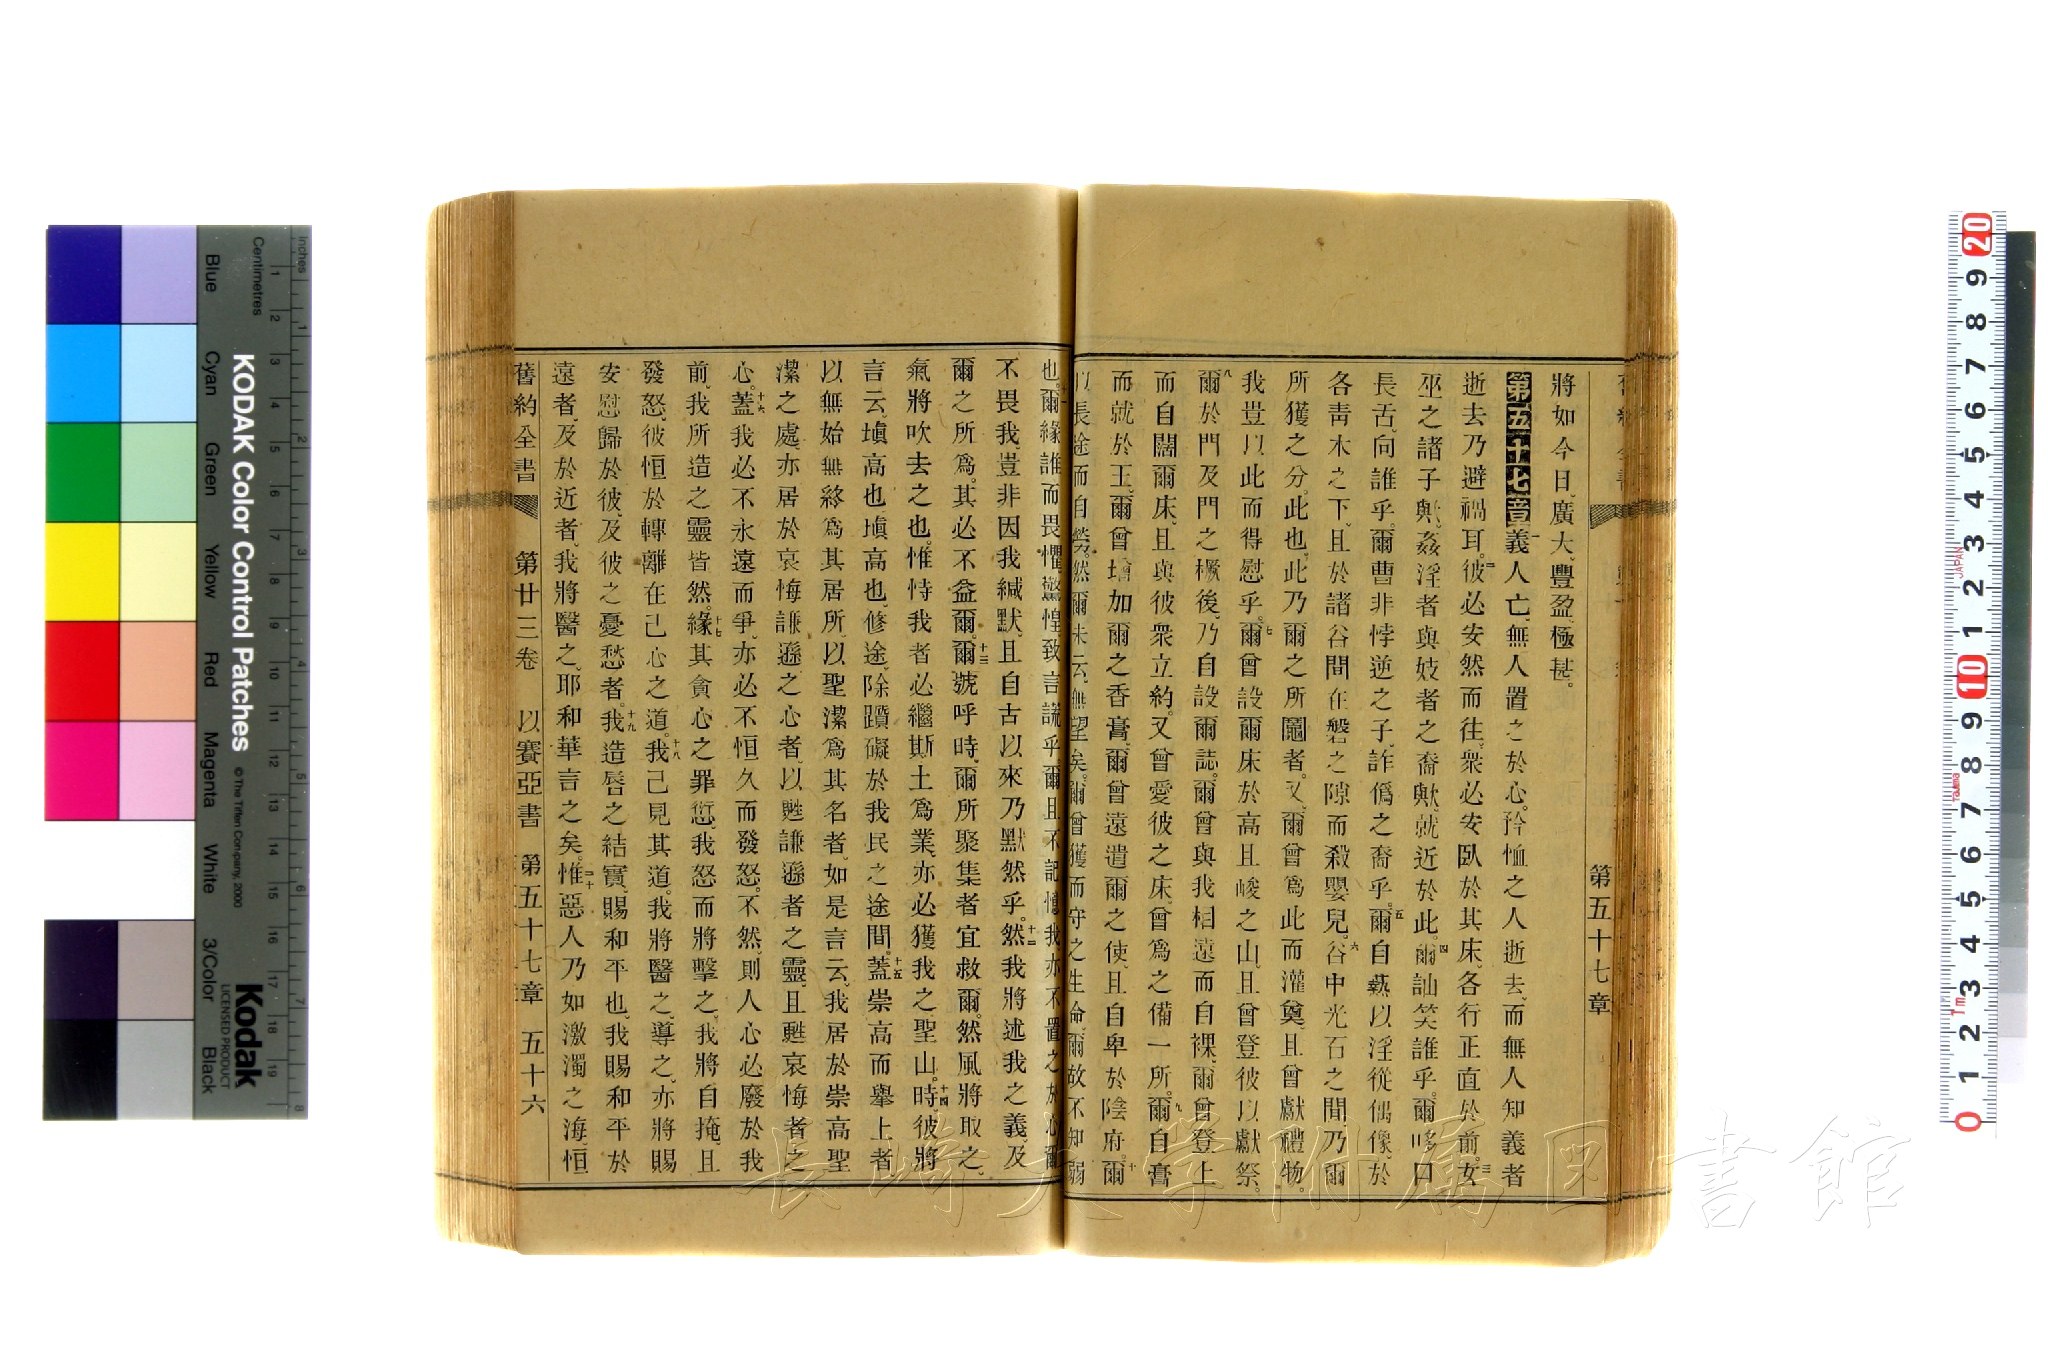 第五十七章
將如今日、廣大、豐盈、極甚。
第五十七章 一義人亡、無人置之於心、矜恤之人逝去、而無人知義者
逝去乃避禍耳。二彼必安然而往、衆必安臥於其床、各行正直於前。三女
巫之諸子與、姦淫者與妓者之裔歟、就近於此。四爾訕笑誰乎、爾哆口
長舌、向誰乎。爾曹非悖逆之子、詐僞之裔乎。五爾自熱以淫從偶像、於
各靑木之下、且於諸谷間在磐之隙而殺嬰兒。六谷中光石之間、乃爾
所獲之分、此也、此乃爾之所鬮者。又、爾曾爲此而灌奠、且曾獻禮物。
我豈以此而得慰乎。七爾曾設爾床於高且峻之山、且曾登彼以獻祭。
八爾於門及門之橛後、乃自設爾誌。爾曾與我相遠而自裸、爾曾登上
而自闊爾床、且與彼衆立約。又曾愛彼之床、曾爲之備一所。九爾自膏
而就於王、爾曾增加爾之香膏、爾曾遠遣爾之使、且自卑於陰府。十爾
以長途而自勞。然爾未云、無望矣。爾曾獲而守之生命、爾故不知弱
也。十一爾緣誰而畏懼驚惶、致言謊乎、爾且不記憶我、亦不置之於心、爾
不畏我、豈非因我緘默、且自古以來乃默然乎。十二然我將述我之義、及
爾之所爲。其必不益爾。十三爾號呼時、爾所聚集者宜救爾。然風將取之、
氣將吹去之也。惟恃我者必繼斯土爲業、亦必獲我之聖山。十四時、彼將
言云、塡高也、塡高也、修途、除躓礙於我民之途間。十五蓋崇高而舉上者
以無始無終爲其居所、以聖潔爲其名者、如是言云、我居於崇高聖
潔之處、亦居於哀悔謙遜之心者、以甦謙遜者之靈、且甦哀悔者之
心。十六蓋我必不永遠而爭、亦必不恒久而發怒。不然、則人心必廢於我
前、我所造之靈皆然。十七緣其貪心之罪愆、我怒而將擊之。我將自掩、且
發怒。彼恒於轉離在己心之道。十八我已見其道。我將醫之、導之、亦將賜
安慰歸於彼、及彼之憂愁者。十九我造唇之結實、賜和平也、我賜和平於
遠者、及於近者。我將醫之、耶和華言之矣。二十惟惡人乃如激濁之海、恒
舊約全書 第廿三卷 以賽亞書 第五十七章 五十六
KODAK Color Control Patches
© The Tiffen Company, 2000
Kodak
LICENSED PRODUCT
Inches
Centimetres
Blue
Cyan
Green
Yellow
Red
Magenta
White
3/Color
Black
長崎大学附属図書館